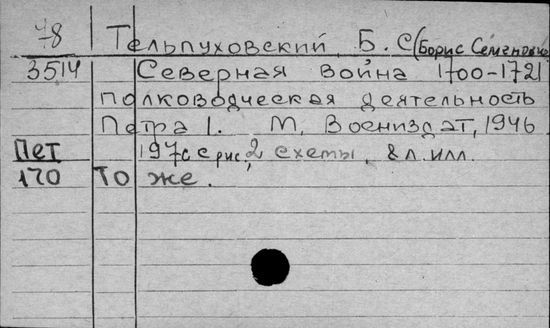 78 Тельпуховский, Б. С (Борис Семенович
3514 Северная война 1700-1721
полководческая деятельность
Петра 1. М, Воениздат, 1946.
Пет 197с с рис, 2 схемы, 8 л. илл.
170 То же.